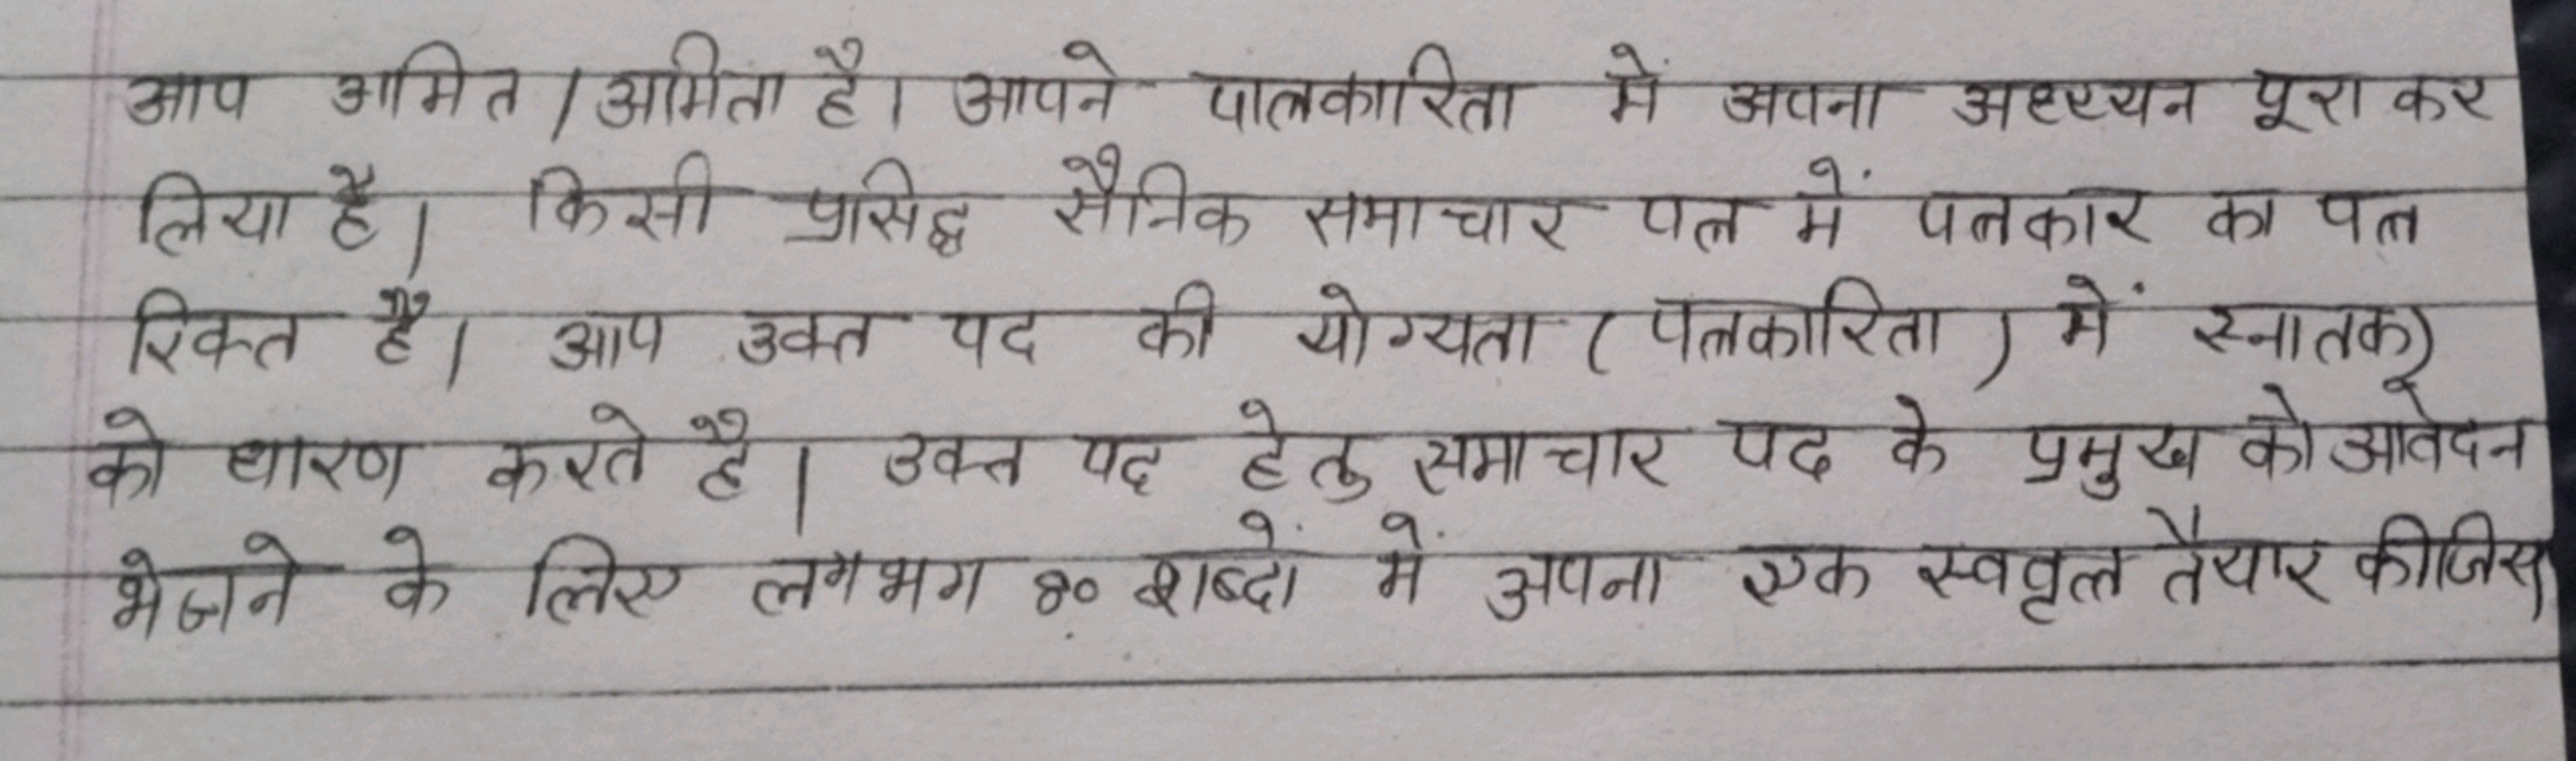 आप अमित / अमिता है। आपने पात्रकारिता में अपना अध्ययन पूरा कर
लिया है। किसी प्रसिद्ध सैनिक समाचार पत्र में पत्रकार का पत्र
रिक्त है। आप उक्त पद की योग्यता (पत्रकारिता) में स्नातक)
को धारण करते है। उक्त पद हेतु समाचार पद के प्रमुख को आवेदन
भेजने के लिए लगभग ८० शब्दों में अपना एक स्ववृत्त तैयार कीजिए